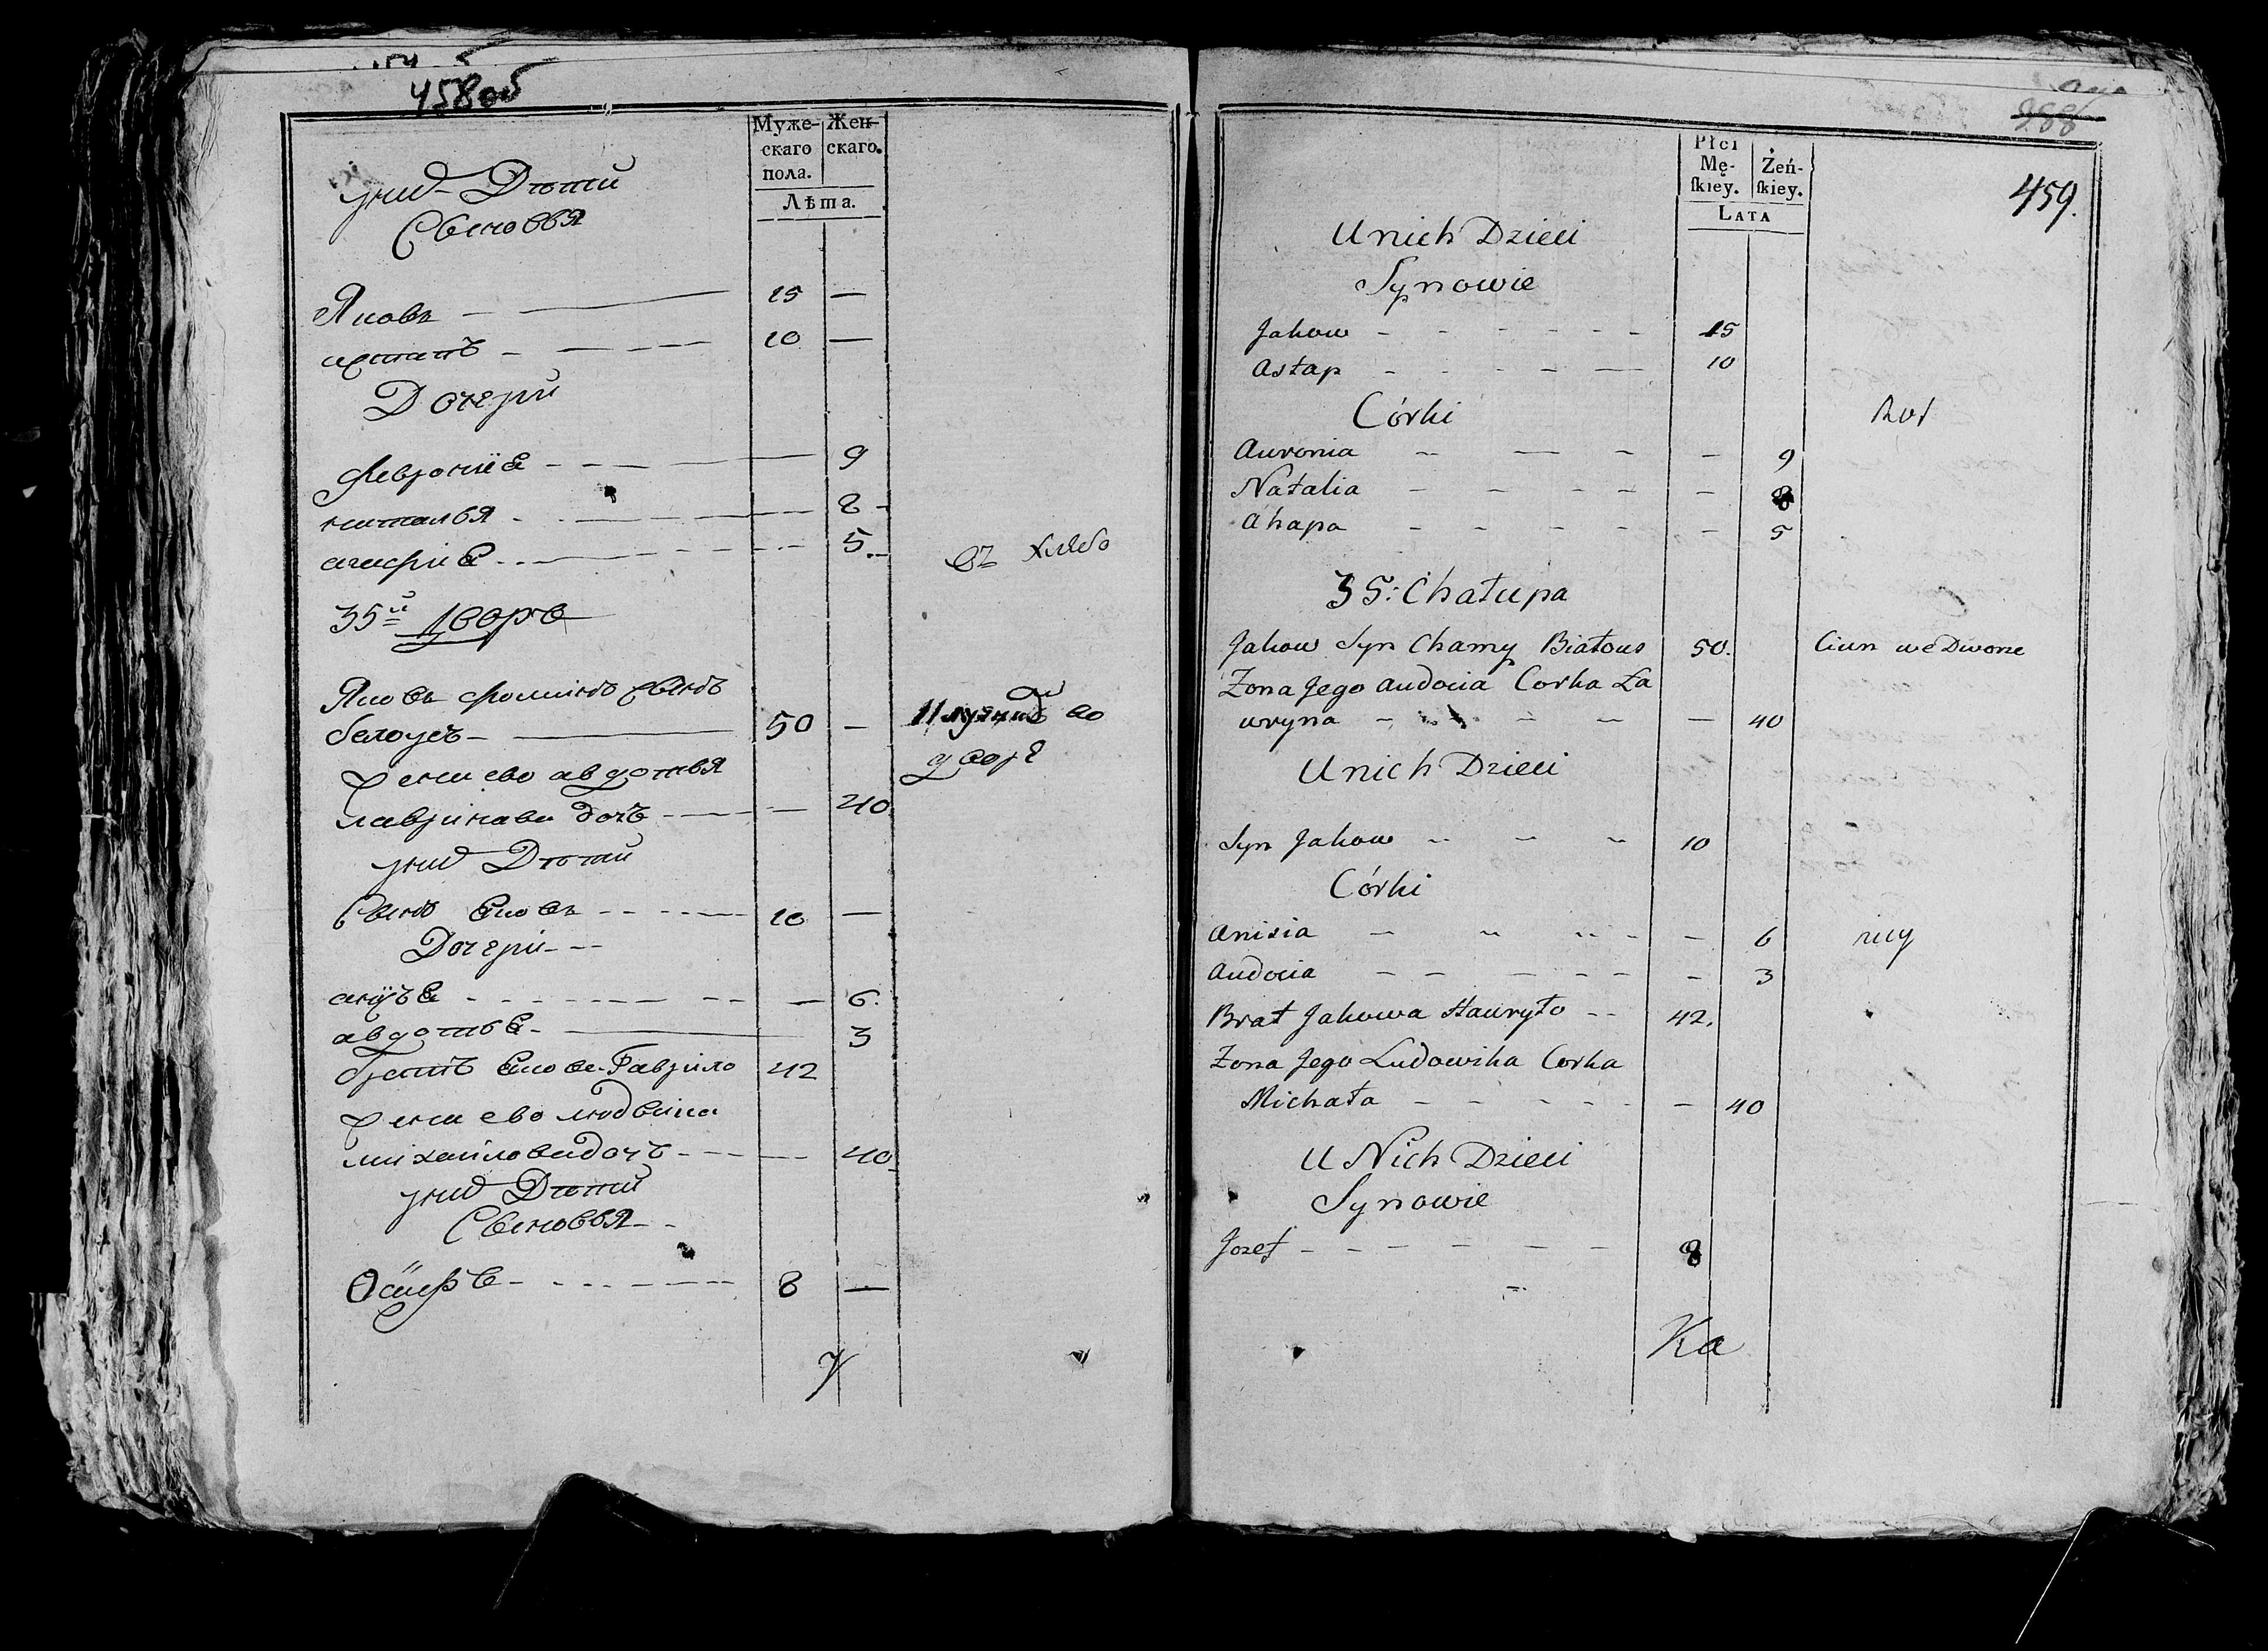 458об
Муже-
скаго
пола.
Жен-
скаго.
Лѣта.
уних Дѣти
Сыновья
Яковъ 15 —
астапъ 10 —
Дочери
февронія 9
наталья 8
агафія 5
35й дворъ
Яковъ фоминъ сынъ
белоусъ 50 —
жена ево авдотья
лавринава дочъ — 40
уних Дѣти
Сынъ Яковъ 10 —
Дочери
авдотья 3
братъ Якова Гаврило 42
жена ево людвика
михайлова дочъ — 40
уних Дѣти
Сыновья
Осифъ 8 —
459.
988
Płci
Mę-
ſkiey.
Żeń-
ſkiey.
Lata
U nich Dzieci
Synowie
Jakow 15
Astap 10
Córki
Auronia — 9
Natalia — 8
Ahapa — 5
35: Chałupa
Jakow Syn Chamy Białous 50.
Żona Jego Audocia Corka Ła
wryna — 40
U nich Dzieci
Syn Jakow 10
Córki
Anisia — 6
Audocia — 3
Brat Jakowa Hauryło 42.
Żona Jego Ludowika Corka
Michała — 40
U Nich Dzieci
Synowie
Jozef 8
Ka